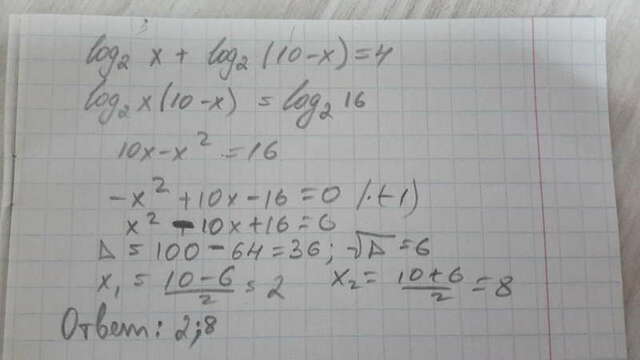 log₂ x + log₂ (10-x) = 4
log₂ x(10-x) = log₂ 16
10x - x² = 16
-x² + 10x - 16 = 0 |·(-1)
x² - 10x + 16 = 0
Δ = 100 - 64 = 36; √Δ = 6
x₁ = (10-6)/2 = 2 x₂ = (10+6)/2 = 8
Ответ: 2;8